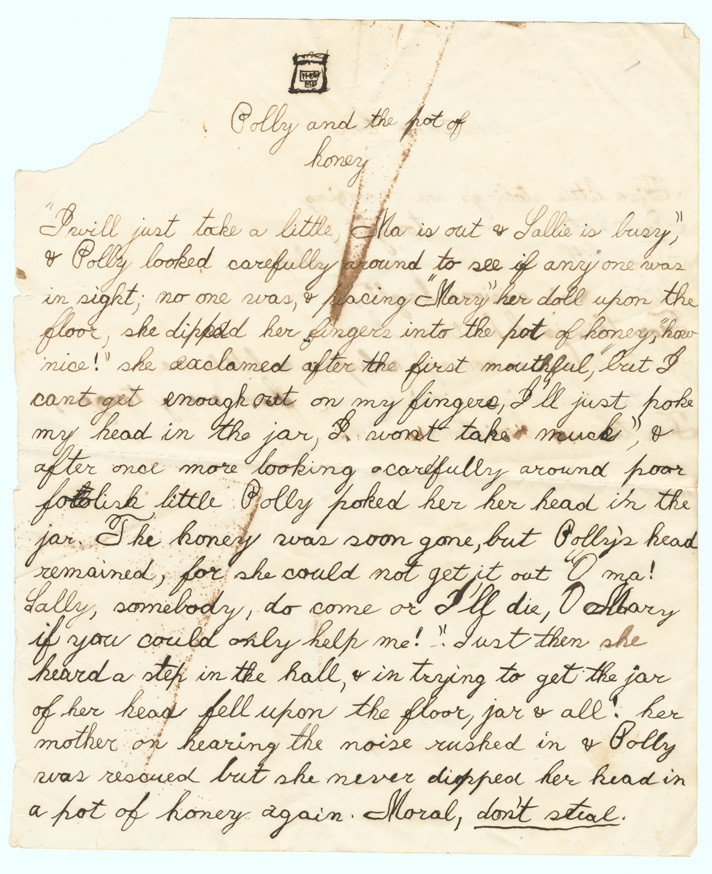 Polly and the pot of
honey
"I will just take a little, Ma is out & Sallie is busy",
& Polly looked carefully around to see if any one was
in sight; no one was, & placing "Mary" her doll upon the
floor, she dipped her fingers into the pot of honey, "how
nice!" she exclaimed after the first mouthful, but I
cant get enough out on my fingers, I'll just poke
my head in the jar, I won't take much", &
after once more looking carefully around poor
foolish little Polly poked her her head in the
jar. The honey was soon gone, but Polly's head
remained, for she could not get it out "O ma!
Sally, somebody, do come or I'll die, O Mary
if you could only help me!" Just then she
heard a step in the hall, & in trying to get the jar
of her head fell upon the floor, jar & all! her
mother on hearing the noise rushed in & Polly
was rescued but she never dipped her head in
a pot of honey again. Moral, don't steal.